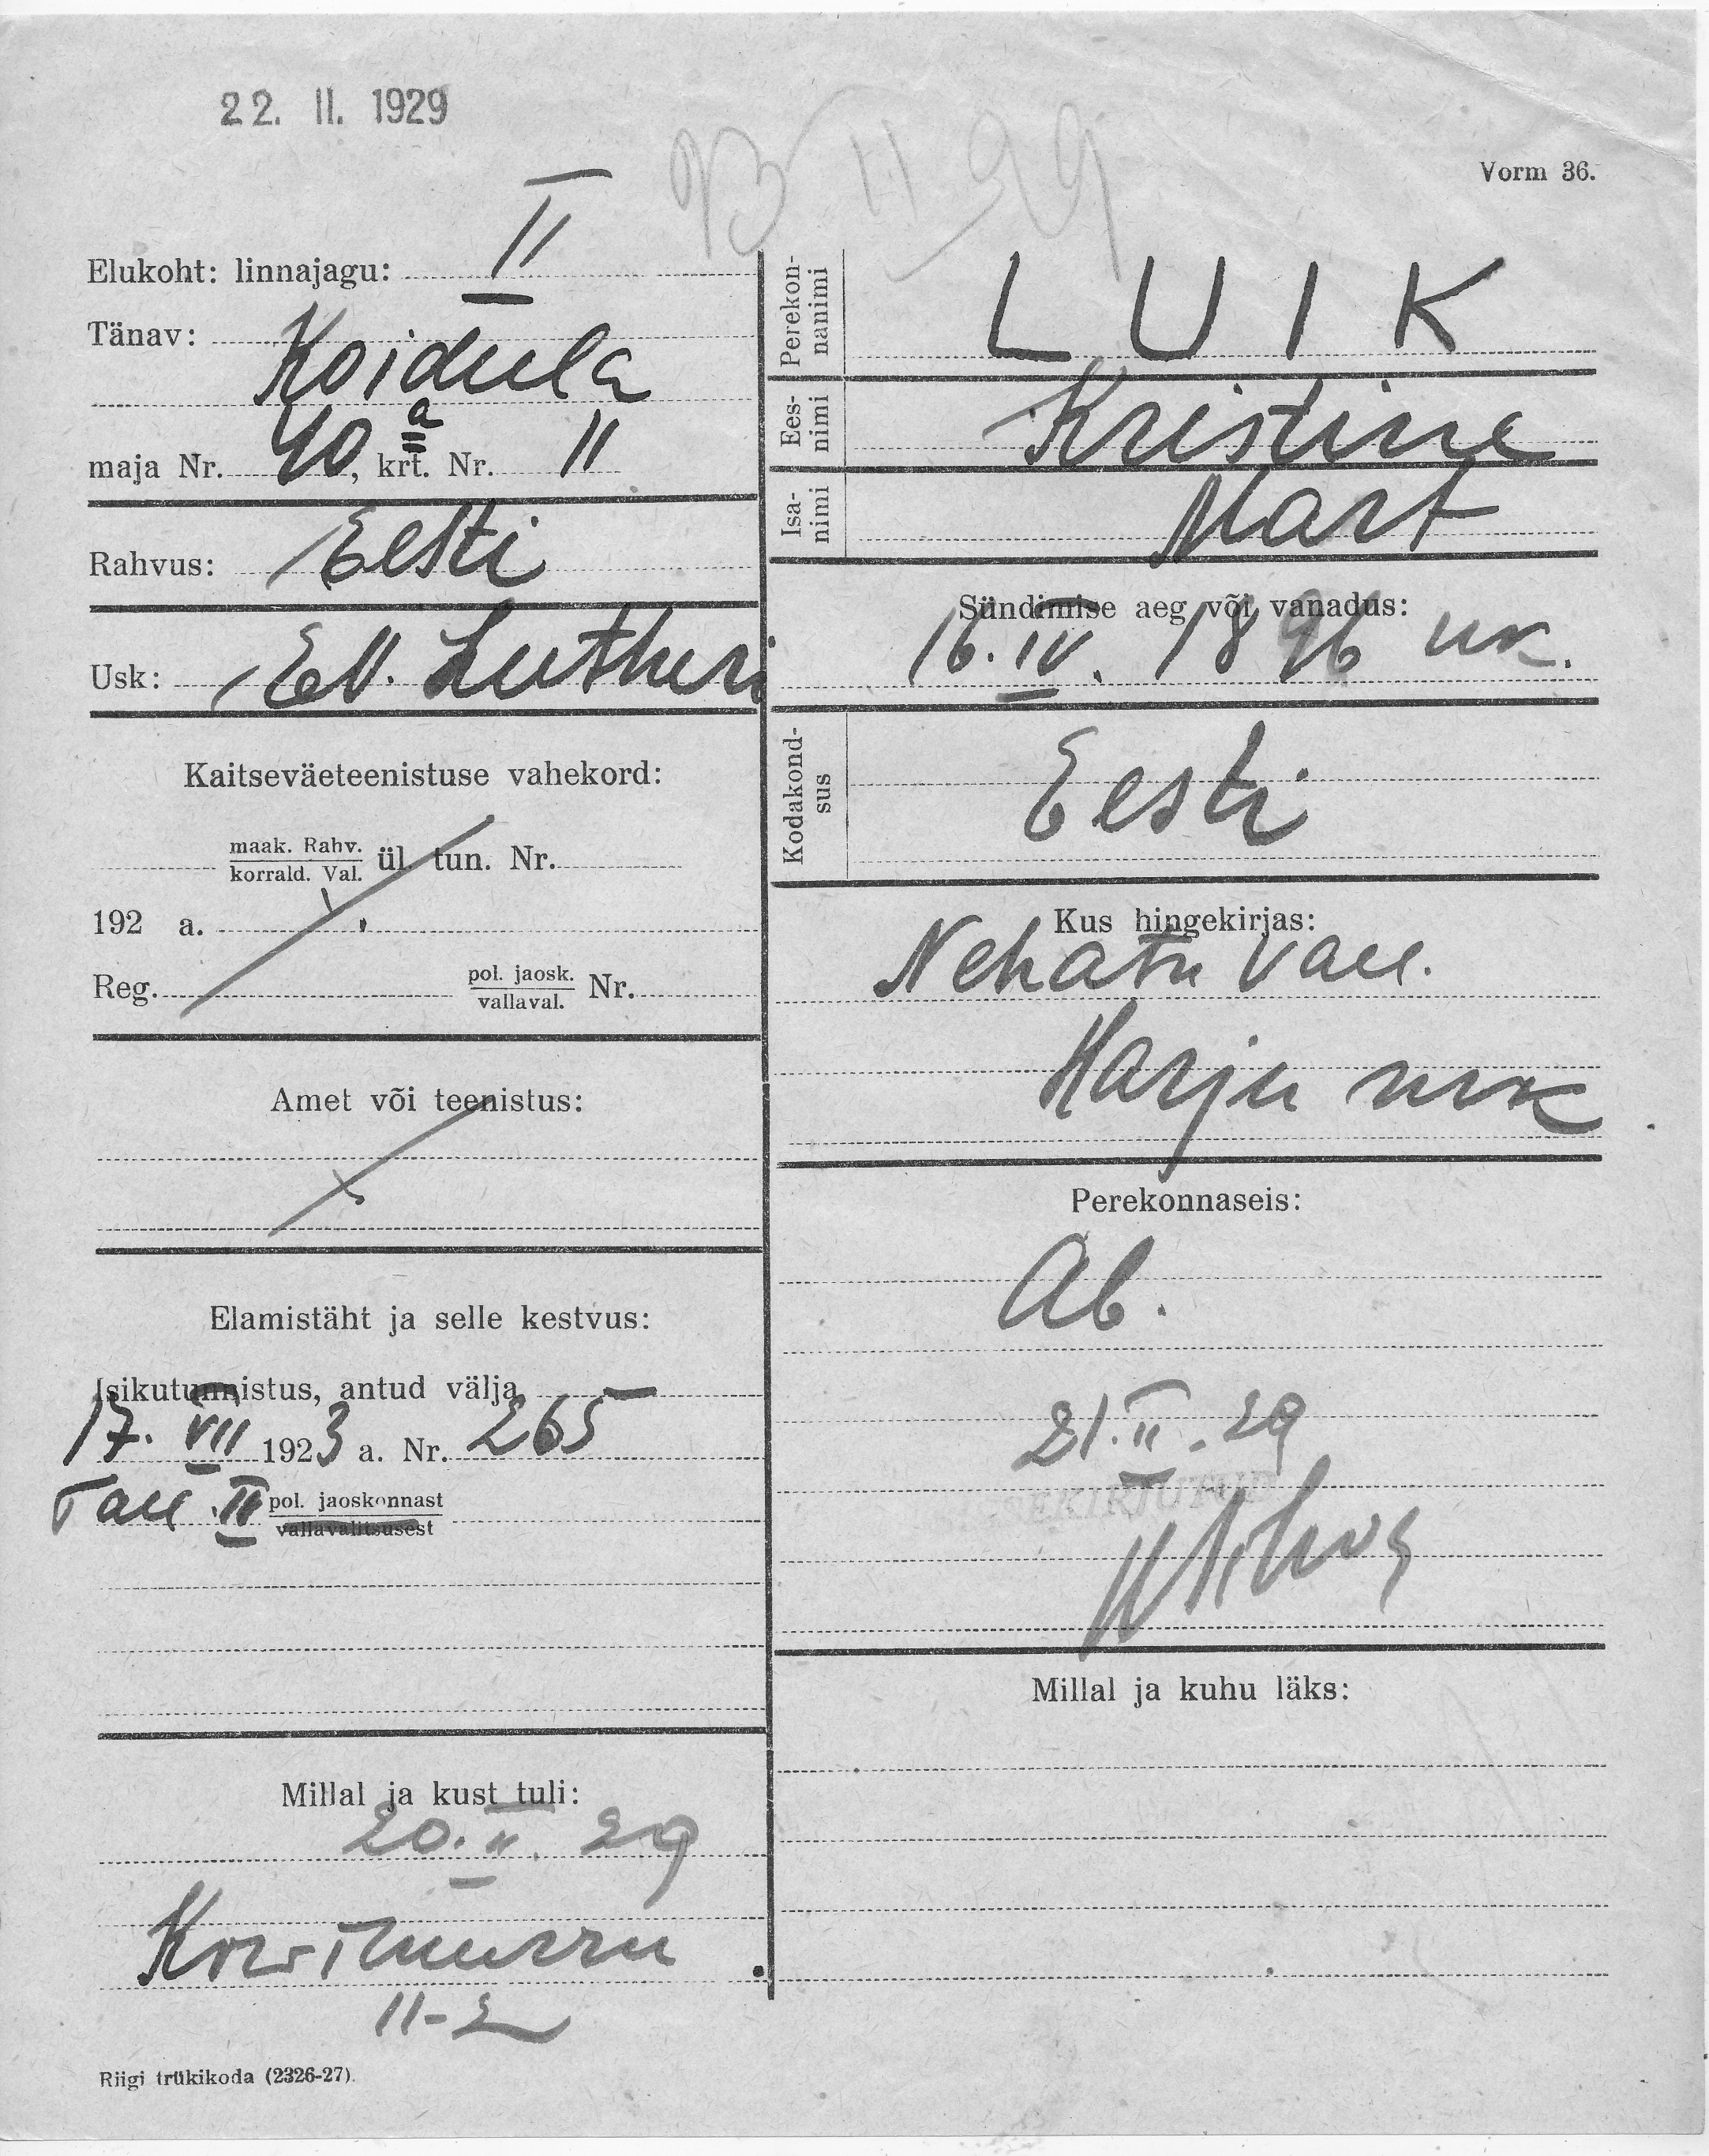 22. II. 1929
Vorm 36.
Elukoht: linnajagu: II
Tänav:
Koidula
maja Nr. 40ª, krt. Nr. 11
Rahvus: Eesti
Usk: Ev. Lutheri
Kaitseväeteenistuse vahekord:
maak. Rahv.
korrald. Val. ül. tun. Nr.
192 a.
Reg. pol. jaosk.
vallaval. Nr.
Amet või teenistus:
Elamistäht ja selle kestvus:
Isikutunnistus, antud välja
17. VII 1923 a. Nr. 265
Tall. II pol. jaoskonnast
vallavalitsusest
Millal ja kust tuli:
20. II. 29
11-2
Riigi trükikoda (2326-27).
Perekon-
nanimi
LUIK
Ees-
nimi
Kristine
Isa-
nimi
Mart
Sündimise aeg või vanadus:
16. IV. 1896 uk.
Kodakond-
sus
Eesti
Kus hingekirjas:
Nehatu vall.
Harju mk
Perekonnaseis:
Ab.
21. II. 29
SEKIRJUTUD
Millal ja kuhu läks: